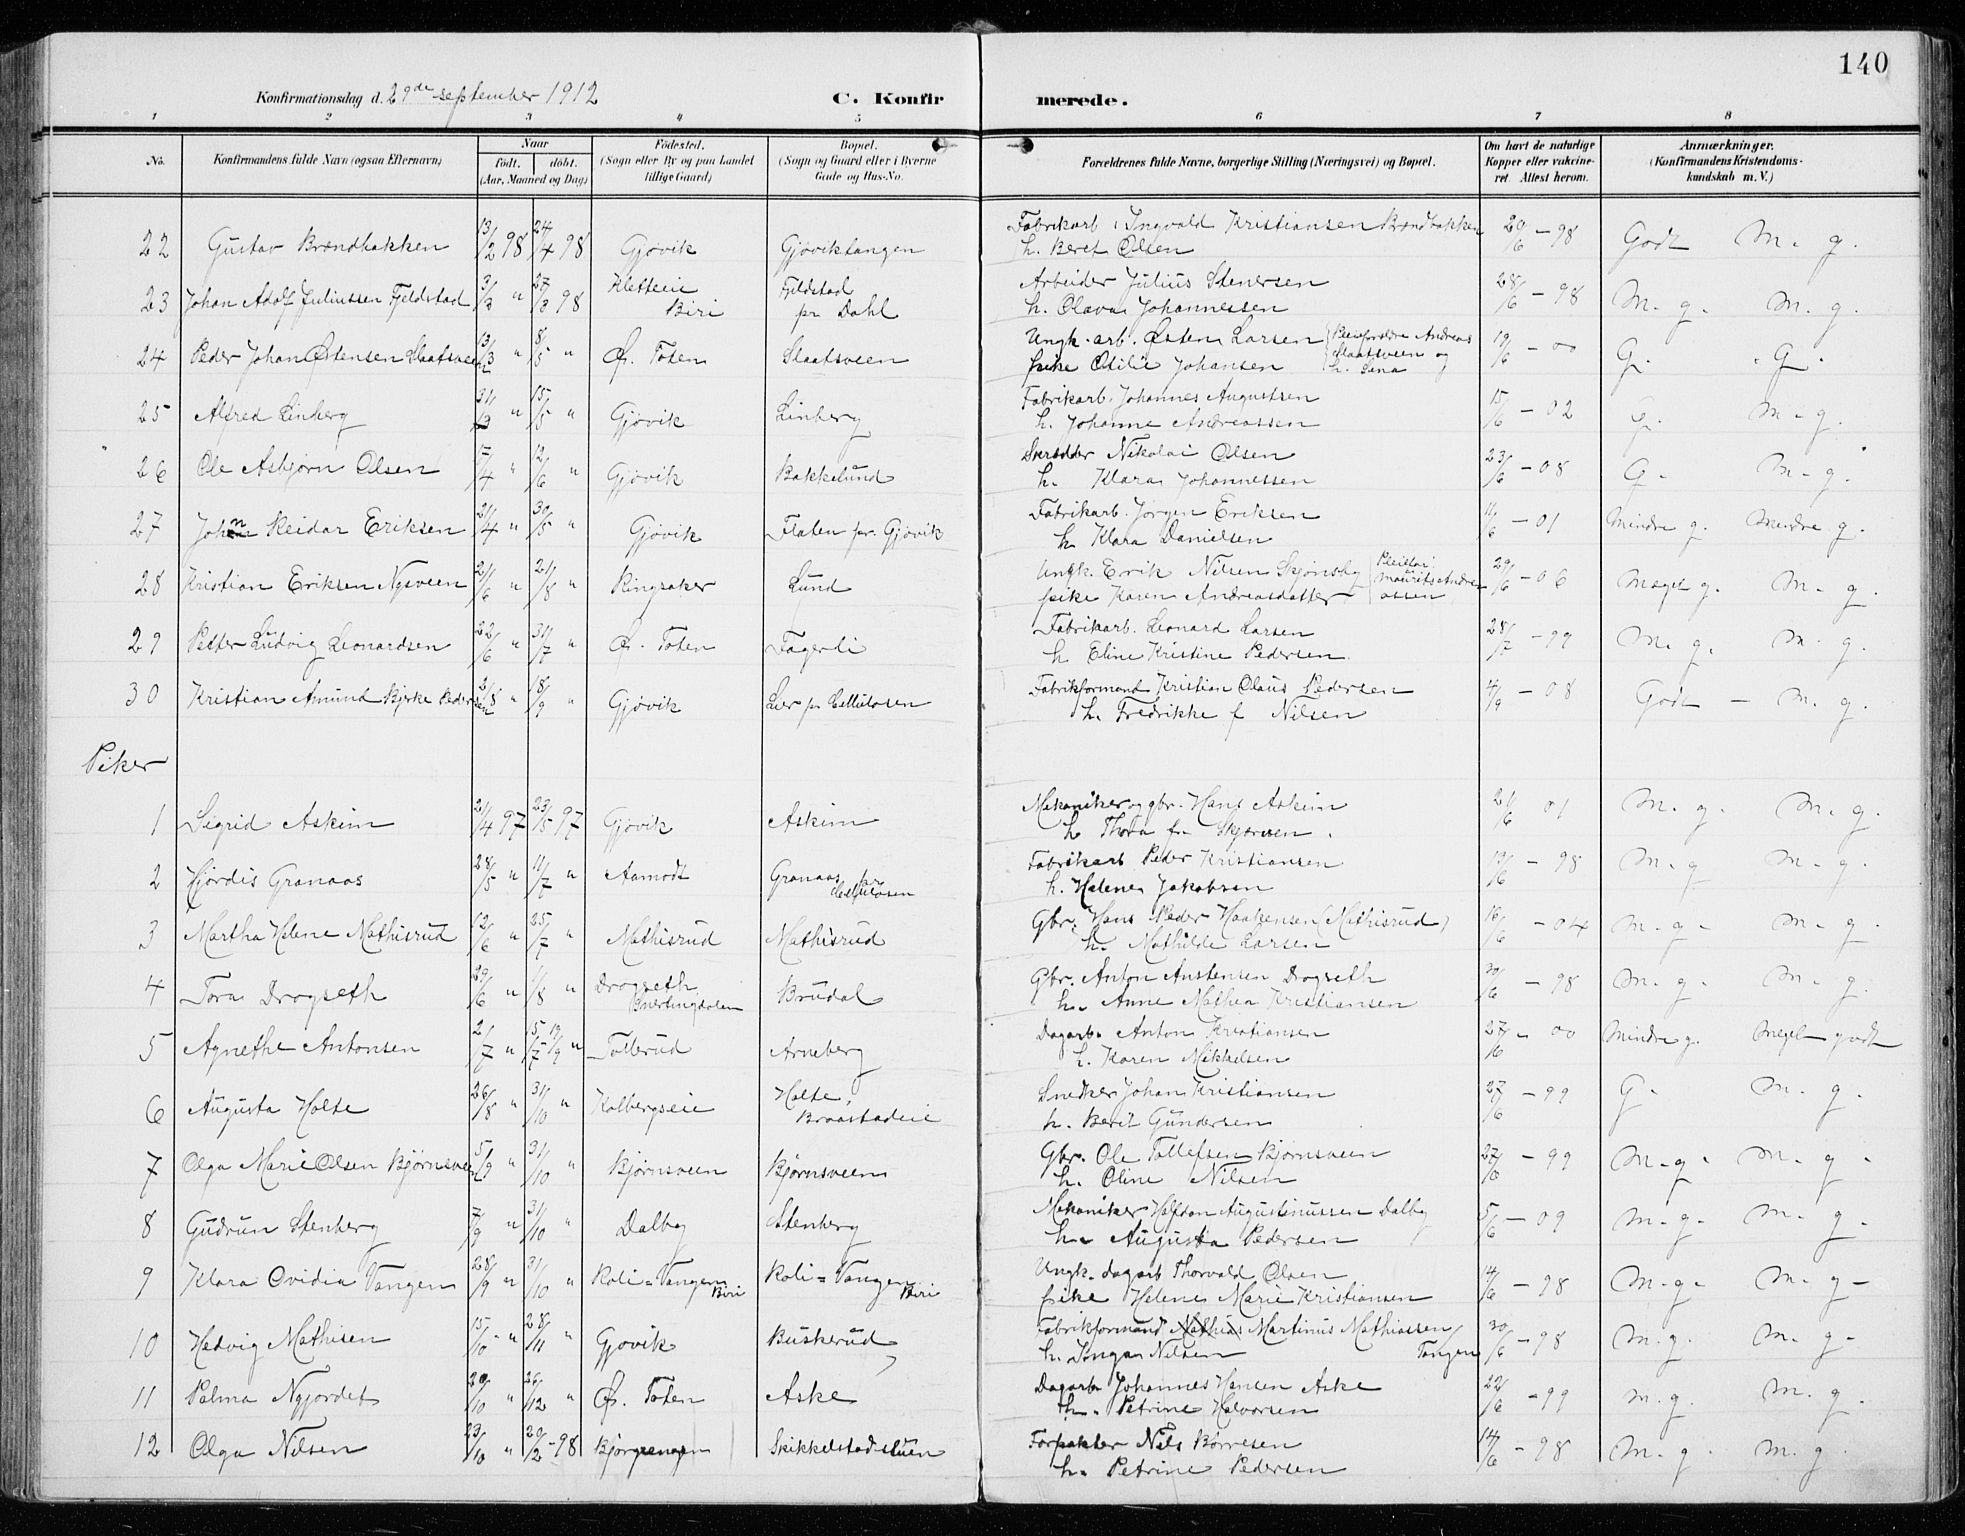 140
Konfirmationsdag d. 29de september 1912
C. Konfirmerede.
1 2 3 4 5 6 7 8
No. Konfirmandens fulde Navn (ogsaa Efternavn) Naar født. døbt. (Aar, Maaned og Dag) Fødested. (Sogn eller By og paa Landet tillige Gaard) Bopæl. (Sogn og Gaard eller i Byerne Gade og Hus-No. Forældrenes fulde Navne, borgerlige Stilling (Næringsvei) og Bopæl. Om havt de naturlige Kopper eller vakcineret. Attest herom. Anmærkninger. (Konfirmandens Kristendomskundskab m. V.)
22 Gustav Brændbakken 13/2 98 24/4 98 Gjøvik Gjøviktangen Fabrikarb. Ingvald Kristiansen Brændbakken 20/6 - 98 Godt M. g.
h. Beret Olsen
23 Johan Adolf Juliussen Fjeldstad 3/3 " 27/3 98 Kletteie Biri Fjeldstad pr Dahl Arbeider Julius Stenersen 28/6 - 98 M. g. M. g.
h. Olava Johannessen
24 Peder Johan Østensen Slaatsveen 13/3 " 8/5 " Ø. Toten Slaatsveen Ungk. arb. Østen Larsen (Pleieforældre Andreas Slaatsveen og h. Lena 19/6 - 00 G. G.
pike Otilie Johansen
25 Alfred Linberg 31/3 " 15/5 " Gjøvik Linberg Fabrikarb. Johannes Augustsen 15/6 - 02 G. M. g.
h. Johanne Andreassen
26 Ole Asbjørn Olsen 17/4 " 12/6 " Gjøvik Bakkelund Skrædder Nikolai Olsen 23/6 - 08 G. M. g.
h. Klara Johannessen
27 John Reidar Eriksen 21/4 " 30/5 " Gjøvik Flaten pr. Gjøvik Fabrikarb. Jørgen Eriksen 11/6 - 01 Mindre g. Mindre g.
h. Klara Danielsen
28 Kristian Eriksen Nysveen 2/6 " 21/8 " Ringsaker Lund Ungk. Erik Nilsen Skjønsby (Pleiefar: Mauritz Andreassen 29/6 - 06 Meget g. M. g.
pike Karen Andreasdatter
29 Petter Ludvig Leonardsen 22/6 " 31/7 " Ø. Toten Fagerli Fabrikarb. Leonard Larsen 28/7 - 99 M. g. M. g.
h. Eline Kristine Pedersen
30 Kristian Amund Bjerke Pedersen 2/8 " 18/9 " Gjøvik Lier pr Cellulosen Fabrikformand Kristian Claus Pedersen 4/9 - 08 Godt - M. g.
h. Fredrikke f Nilsen
Piker
1 Sigrid Askim 21/4 97 23/5 97 Gjøvik Askim Mekaniker og gbr. Hans Askim 21/6 01 M. g. M. g.
h. Thora f. Skjerven
2 Hjørdis Granaas 28/5 " 11/7 " Aamodt Granaas pr Cellulosen Fabrikarb Peder Kristiansen 19/6 - 98 M. g M. g.
h. Helene Jakobsen
3 Martha Helene Mathisrud 12/6 " 25/7 " Mathisrud Mathisrud Gbr. Hans Peder Haakensen (Mathisrud) 16/6 - 04 M. g. M. g.
h. Mathilde Larsen
4 Tora Drogseth 29/6 " 1/8 " Drogseth Snertingdalen Brudal Gbr. Anton Austensen Drogseth 30/6 - 98 M. g. M. g.
h. Anne Mathea Kristiansen
5 Agnethe Antonsen 2/7 " 15/7 19/9 " Tollerud Arneberg Dagarb. Anton Kristiansen 27/6 - 00 Mindre g. Meget godt
h. Karen Mikkelsen
6 Augusta Holte 26/8 " 31/10 " Kolbergseie Holte, Braastadeie Snedker Johan Kristiansen 27/6 - 99 G. M. g.
h. Berit Gundersen
7 Olga Marie Olsen Bjørnsveen 5/9 " 31/10 " Bjørnsveen Bjørnsveen Gbr. Ole Tollefsen Bjørnsveen 27/6 - 99 M. g. M. g.
h. Oline Nilsen
8 Gudrun Stenberg 7/9 " 31/10 " Dalby Stenberg Mekaniker Halfdan Augustinussen Dalby 5/6 - 09 M. g. M. g.
h. Augusta Pedersen
9 Klara Ovidia Vangen 28/9 " 31/10 " Roli=Vangen Biri Roli=Vangen Biri Ungk. dagarb Thorvald Olsen 14/6 - 98 M. g. M. g.
pike Helene Marie Kristiansen
10 Hedvig Mathisen 15/10 " 28/11 " Gjøvik Buskerud Fabrikformand Martinus Mathiassen 30/6 - 98 M. g. M. g.
h. Inga Nilsen Tangen
11 Palma Nyjordet 20/10 " 26/12 " Ø. Toten Aske Dagarb. Johannes Hansen Aske 22/6 - 99 M. g. M. g.
h. Petrine Halvorsen
12 Olga Nilsen 23/10 " 20/2 - 98 Skikkelstadstuen Forpakter Nils Børresen 14/6 - 98 M. g. M. g.
h. Petrine Pedersen